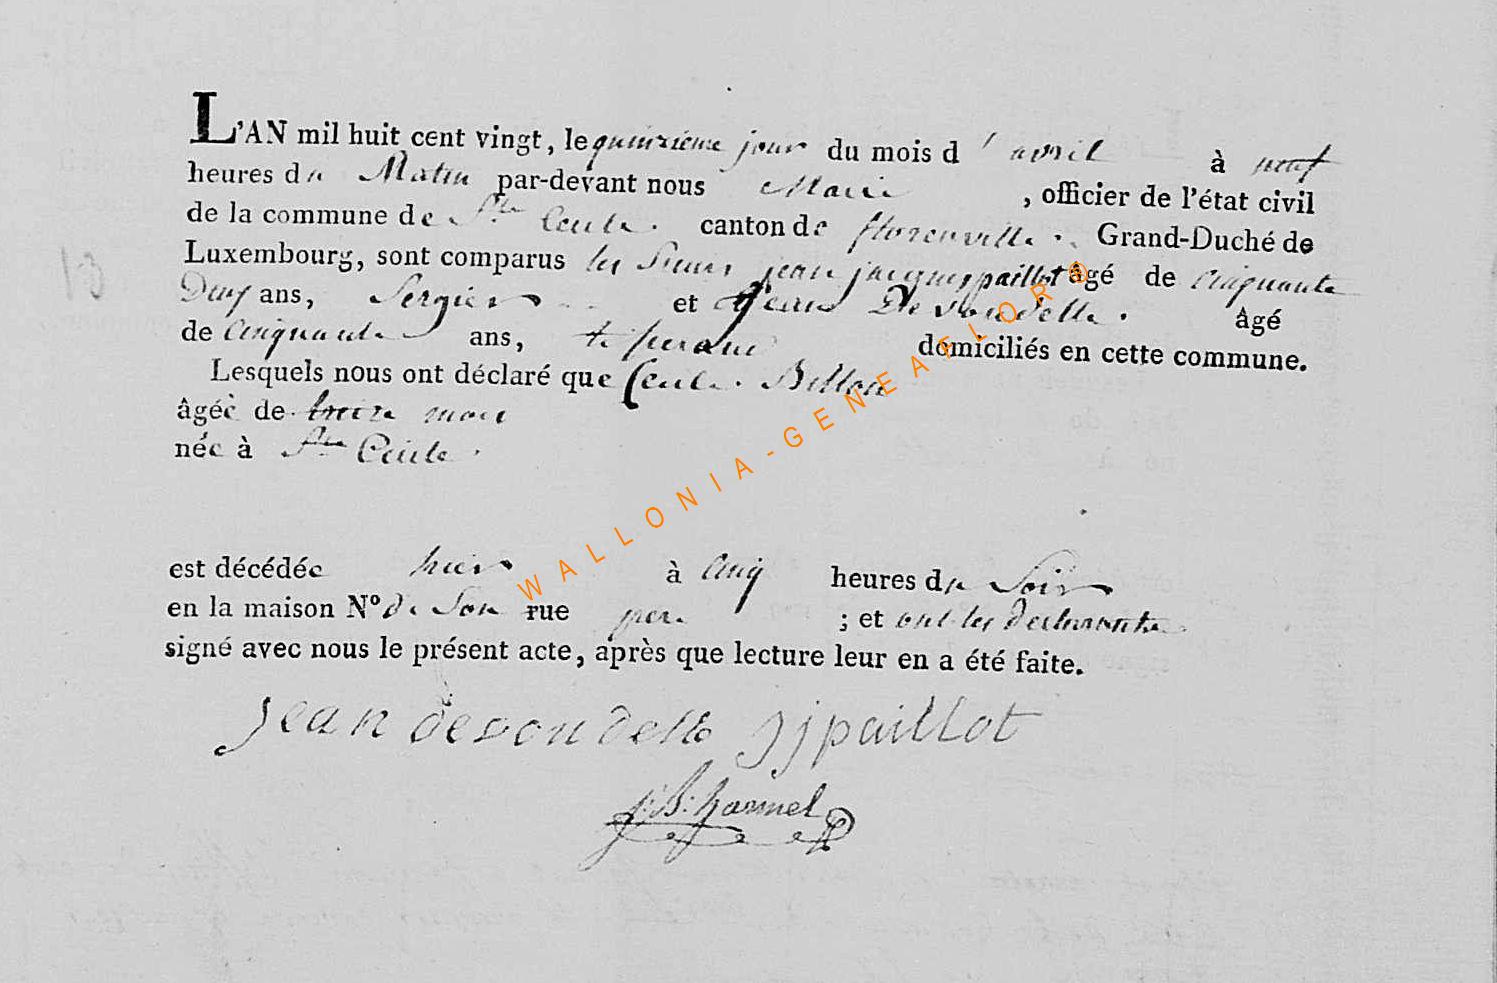 L'AN mil huit cent vingt, le quinzieme jour du mois d'avril à neuf
heures du Matin par-devant nous Maire, officier de l'état civil
de la commune de Ste Cecile. canton de florenville. Grand-Duché de
Luxembourg, sont comparus les Sieurs jean jacques paillot âgé de cinquante
Deux ans, Sergier et Jean Devoudelle. âgé
de Cinquante ans, tisserand domiciliés en cette commune.
Lesquels nous ont déclaré que Cecile. Billon
âgée de treize mois
née à Ste Cecile.
est décédée hier à Cinq heures du Soir
en la maison No de Son rue pere ; et ont les declarants
signé avec nous le présent acte, après que lecture leur en a été faite.
jean devoudelle jjpaillot
J: B: harmel
WALLONIA-GENEAFLOR®